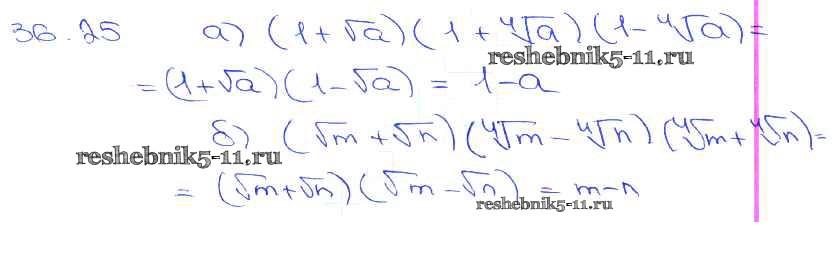 36.25 а) (1 + √a)(1 + ⁴√a)(1 - ⁴√a) =
reshebnik5-11.ru
= (1 + √a)(1 - √a) = 1 - a
б) (√m + √n)(⁴√m - ⁴√n)(⁴√m + ⁴√n) =
reshebnik5-11.ru
= (√m + √n)(√m - √n) = m - n
reshebnik5-11.ru